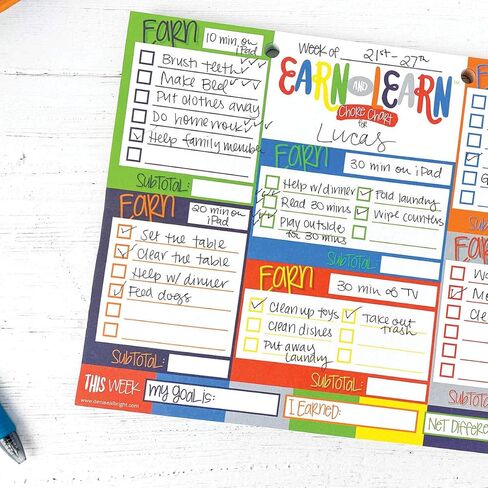 EARN 10 min on iPad
Brush teeth
Make Bed
Put clothes away
Do homework
Help family member
SUBTOTAL:
Week of 21st - 27th
EARN AND LEARN
CHORE CHART
for
Lucas
EARN 30 min on iPad
Help w/dinner
Read 30 mins
Play outside
for 30 mins
Fold laundry
Wipe counters
SUBTOTAL:
EARN 20 min on iPad
Set the table
Clear the table
Help w/ dinner
Feed dogs
SUBTOTAL:
EARN 30 min of TV
Clean up toys
Clean dishes
Put away
laundry
Take out
trash
SUBTOTAL:
THIS WEEK
my GOAL is:
I EARNED:
NOT DIFFERE
www.denisealbright.com